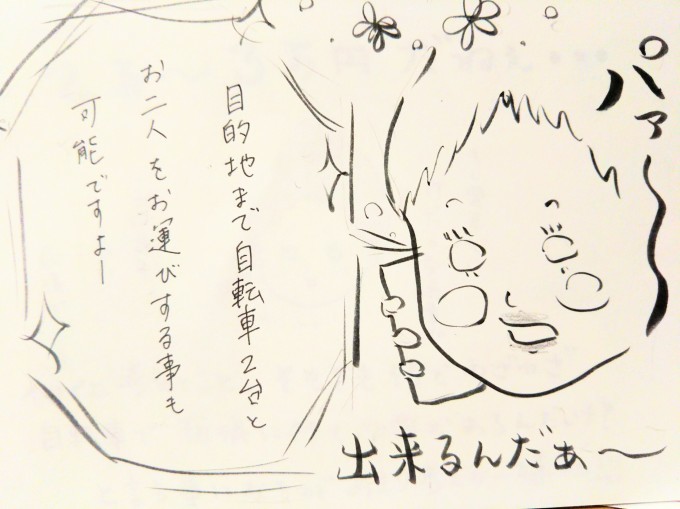 パァ〜
目的地まで自転車2台と
お二人をお運びする事も
可能ですよー
出来るんだぁ〜